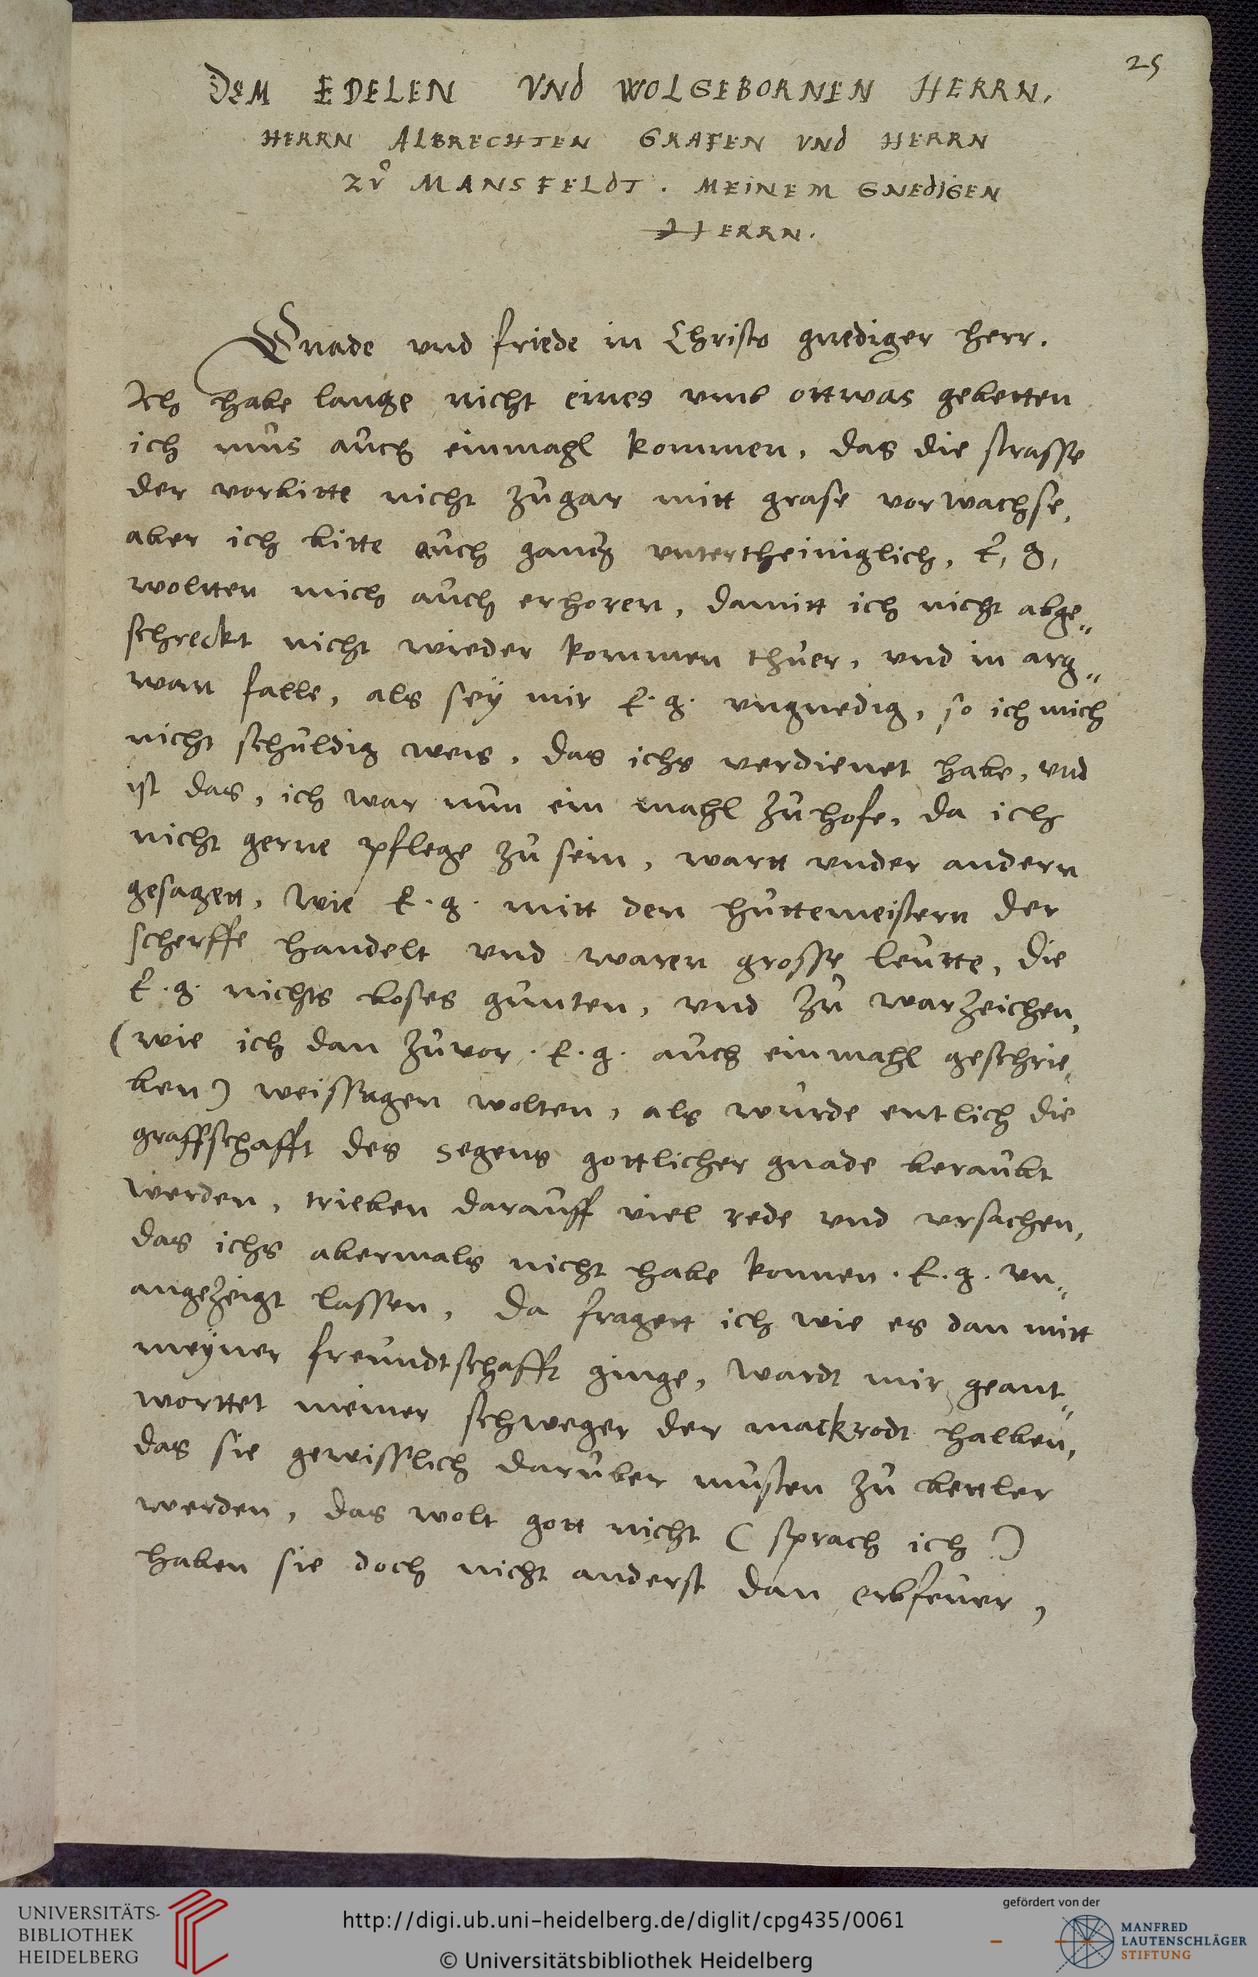 25
DEM EDELEN VNd WOLGEBORNEN HERRN.
HERRN ALBRECHTEN GRAFEN VNd HERRN
ZŮ MANSFELDT. MEINEM GNEDIGEN
HERRN.
Gnade vnd friede in Christo gnediger herr.
Ich habe lange nicht eines vmb ettwas gebetten
ich mus auch einmahl kommen, das die strasse
der vorbitte nicht zugar mitt grase vorwachse,
aber ich bitte auch gantz vnterthениglich, E, g,
woltten mich auch erhoren, damitt ich nicht abge„
schreckt nicht wieder kommen thuer, vnd in arg„
wan falle, als sey mir E. g. vngnedig, so ich mich
nicht schuldig weis, das ichs verdienet habe, vnd
ist das, ich war nun ein mahl zuhofe, da ich
nicht gerne pflege zu sein, wartt vnder andern
gesagett, wie E. g. mitt den huttemeistern der
scherffe handelt vnd waren grosse leutte, die
E. g. nichts boses gunten, vnd zu warzeichen,
(wie ich dan zuvor. E. g. auch einmahl geschrie„
ben) weissagen wolten, als wurde entlich die
graffschafft des segens gottlicher gnade beraubt
werden, trieben darauff viel rede vnd vrsachen,
das ichs abermals nicht habe konnen. E. g. vn„
angezeigt lassen, da fragett ich wie es dan mitt
meyner freundtschafft ginge, wardt mir geant„
worttet meiner schweger der mackrodt halben,
das sie gewisslich daruber musten zu bettler
werden, das wolt gott nicht (sprach ich)
haben sie doch nicht anderst dan erbfeuer,
UNIVERSITÄTS-
BIBLIOTHEK
HEIDELBERG
http://digi.ub.uni-heidelberg.de/diglit/cpg435/0061
© Universitätsbibliothek Heidelberg
gefördert von der
MANFRED
LAUTENSCHLÄGER
STIFTUNG